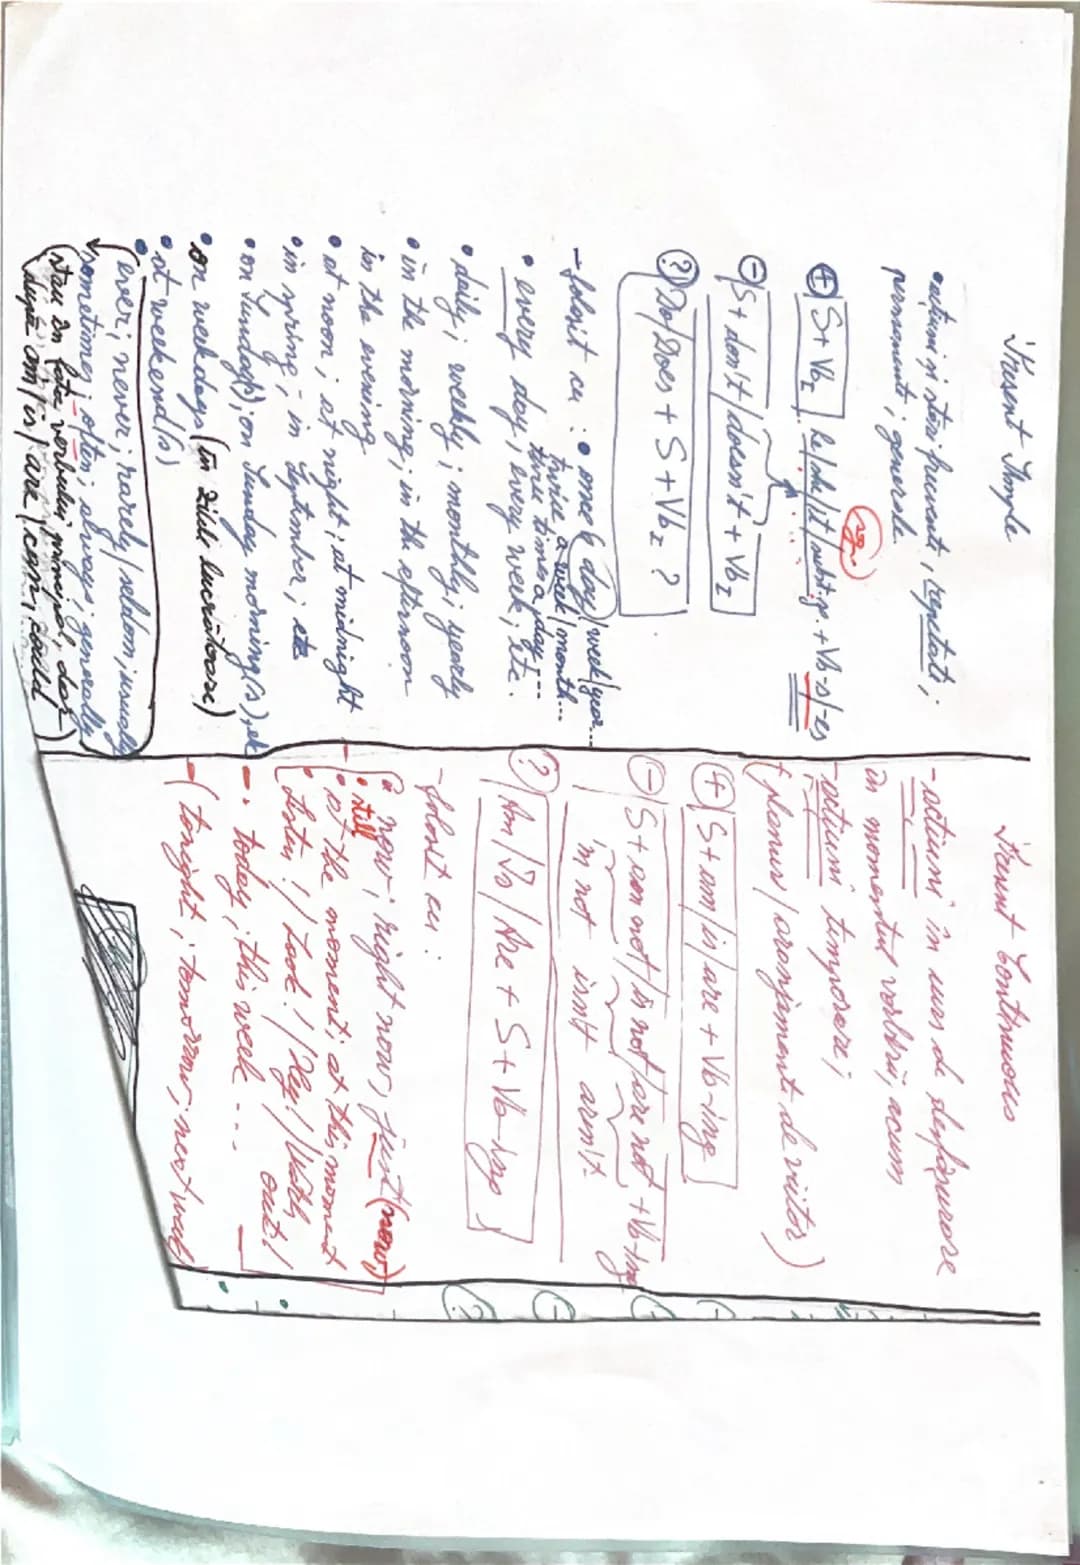 Present Simple
• acțiuni și stări frecvente, repetate,
permanente; generale.
(sg.)
(+) S + Vb I he/she/it/subst. sg. + Vb-s/-es
(-) S + don't/doesn't + Vb I
(?) Do/Does + S + Vb I ?
- folosit cu : • once a day/week/year...
twice a week/month...
three times a day...
• every day; every week; etc.
• daily; weekly; monthly; yearly
• in the morning; in the afternoon
in the evening
• at noon; at night; at midnight
• in spring; in September; etc
• on Sunday(s); on Sunday morning(s), etc
• on weekdays (în zilele lucrătoare)
• at weekend(s)
• ever; never; rarely/seldom; usually
sometimes; often; always; generally
(stau în fața verbului principal, dar
după am/is/are/can; could)
Present Continuous
- acțiuni în curs de desfășurare
în momentul vorbirii, acum
- acțiuni temporare;
(planuri/aranjamente de viitor)
(+) S + am/is/are + Vb-ing
(-) S + am not/is not/are not + Vb-ing
'm not isn't aren't
(?) Am/Is/Are + S + Vb-ing
- folosit cu:
• now; right now; just (now)
• still
• at the moment; at this moment
• Listen!/Look!/Hey!/Watch out!
- • today; this week ....
- (tonight; tomorrow; next week)
(-)
(+)
(-)
(?)